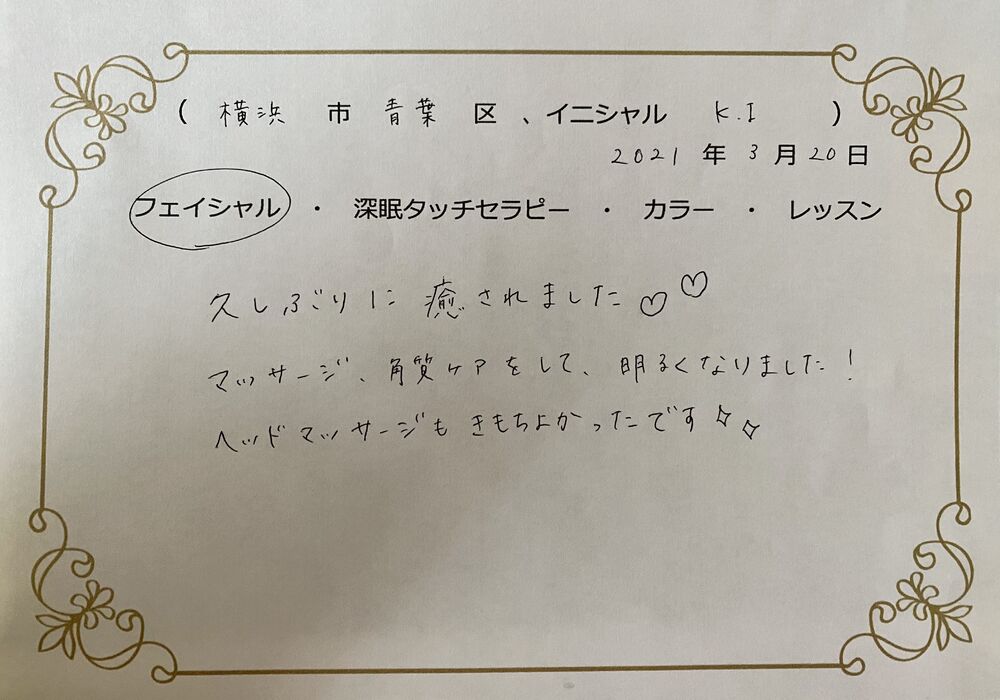 ( 横浜 市 青葉 区 、イニシャル K.I )
2021 年 3 月 20 日
フェイシャル ・ 深眠タッチセラピー ・ カラー ・ レッスン
久しぶりに癒されました♡♡
マッサージ、角質ケアをして、明るくなりました!
ヘッドマッサージもきもちよかったです✧✧